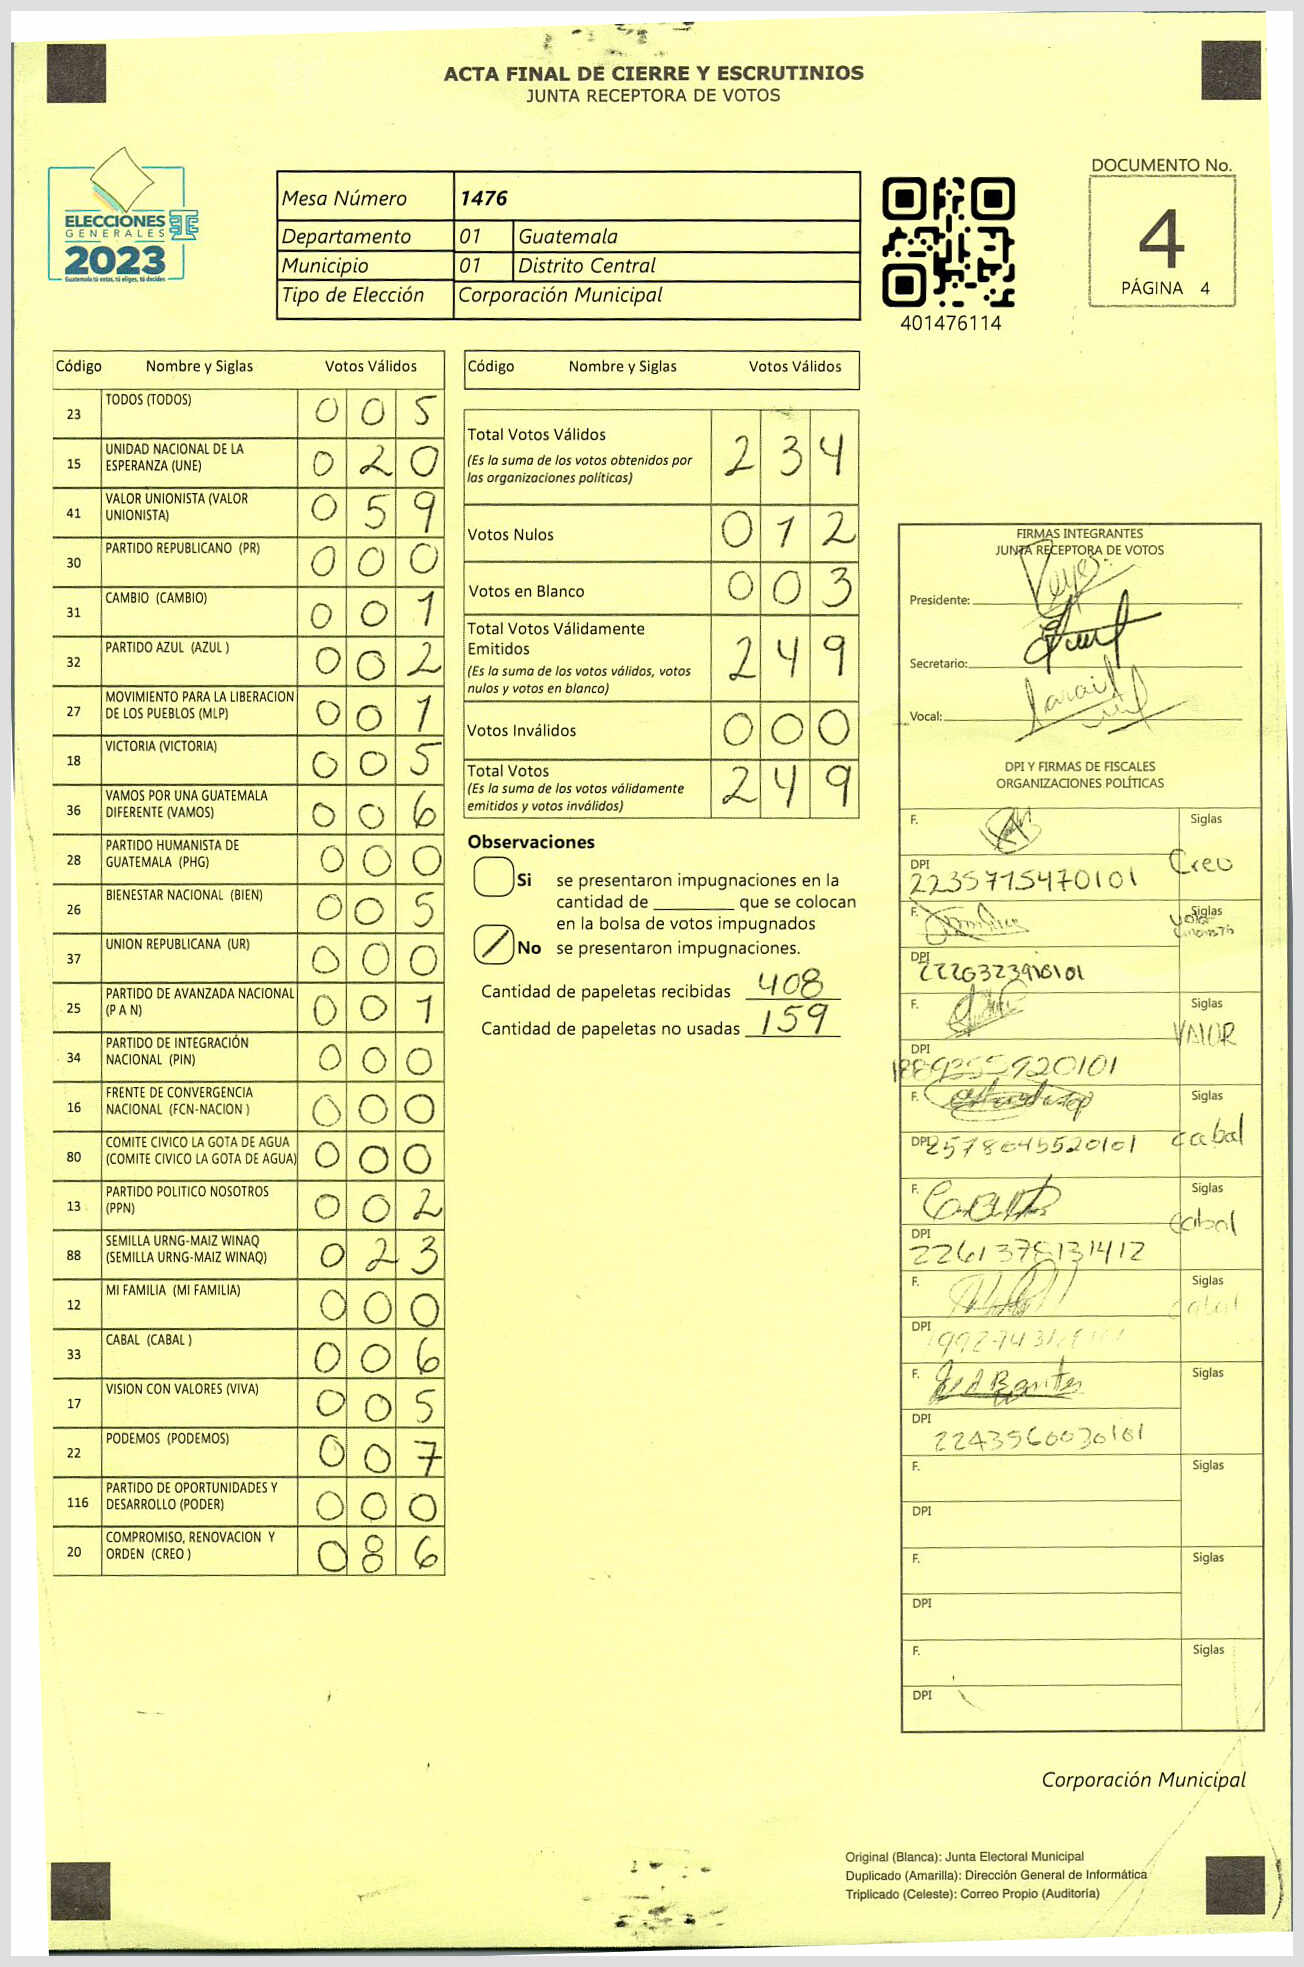 ACTA FINAL DE CIERRE Y ESCRUTINIOS
JUNTA RECEPTORA DE VOTOS
ELECCIONES
GENERALES
2023
Guatemala tú votas, tú eliges, tú decides
Mesa Número 1476
Departamento 01 Guatemala
Municipio 01 Distrito Central
Tipo de Elección Corporación Municipal
401476114
DOCUMENTO No.
4
PÁGINA 4
Código Nombre y Siglas Votos Válidos
23 TODOS (TODOS) 0 0 5
15 UNIDAD NACIONAL DE LA
ESPERANZA (UNE) 0 2 0
41 VALOR UNIONISTA (VALOR
UNIONISTA) 0 5 9
30 PARTIDO REPUBLICANO (PR) 0 0 0
31 CAMBIO (CAMBIO) 0 0 1
32 PARTIDO AZUL (AZUL ) 0 0 2
27 MOVIMIENTO PARA LA LIBERACION
DE LOS PUEBLOS (MLP) 0 0 1
18 VICTORIA (VICTORIA) 0 0 5
36 VAMOS POR UNA GUATEMALA
DIFERENTE (VAMOS) 0 0 6
28 PARTIDO HUMANISTA DE
GUATEMALA (PHG) 0 0 0
26 BIENESTAR NACIONAL (BIEN) 0 0 5
37 UNION REPUBLICANA (UR) 0 0 0
25 PARTIDO DE AVANZADA NACIONAL
(P A N) 0 0 1
34 PARTIDO DE INTEGRACIÓN
NACIONAL (PIN) 0 0 0
16 FRENTE DE CONVERGENCIA
NACIONAL (FCN-NACION ) 0 0 0
80 COMITE CIVICO LA GOTA DE AGUA
(COMITE CIVICO LA GOTA DE AGUA) 0 0 0
13 PARTIDO POLITICO NOSOTROS
(PPN) 0 0 2
88 SEMILLA URNG-MAIZ WINAQ
(SEMILLA URNG-MAIZ WINAQ) 0 2 3
12 MI FAMILIA (MI FAMILIA) 0 0 0
33 CABAL (CABAL ) 0 0 6
17 VISION CON VALORES (VIVA) 0 0 5
22 PODEMOS (PODEMOS) 0 0 7
116 PARTIDO DE OPORTUNIDADES Y
DESARROLLO (PODER) 0 0 0
20 COMPROMISO, RENOVACION Y
ORDEN (CREO ) 0 8 6
Código Nombre y Siglas Votos Válidos
Total Votos Válidos 2 3 4
(Es la suma de los votos obtenidos por
las organizaciones políticas)
Votos Nulos 0 1 2
Votos en Blanco 0 0 3
Total Votos Válidamente
Emitidos 2 4 9
(Es la suma de los votos válidos, votos
nulos y votos en blanco)
Votos Inválidos 0 0 0
Total Votos 2 4 9
(Es la suma de los votos válidamente
emitidos y votos inválidos)
Observaciones
Si se presentaron impugnaciones en la
cantidad de ________ que se colocan
en la bolsa de votos impugnados
No se presentaron impugnaciones.
Cantidad de papeletas recibidas 408
Cantidad de papeletas no usadas 159
FIRMAS INTEGRANTES
JUNTA RECEPTORA DE VOTOS
Presidente:
Secretario:
Vocal:
DPI Y FIRMAS DE FISCALES
ORGANIZACIONES POLÍTICAS
F. Siglas
Creo
DPI
2235775470101
F. Siglas
DPI
F. Siglas
VALOR
DPI
F. Siglas
cabal
DPI
F. Siglas
cabal
DPI
2261378131412
F. Siglas
cabal
DPI
F. Siglas
DPI
2243560030101
F. Siglas
DPI
F. Siglas
DPI
F. Siglas
DPI
Corporación Municipal
Original (Blanca): Junta Electoral Municipal
Duplicado (Amarilla): Dirección General de Informática
Triplicado (Celeste): Correo Propio (Auditoría)